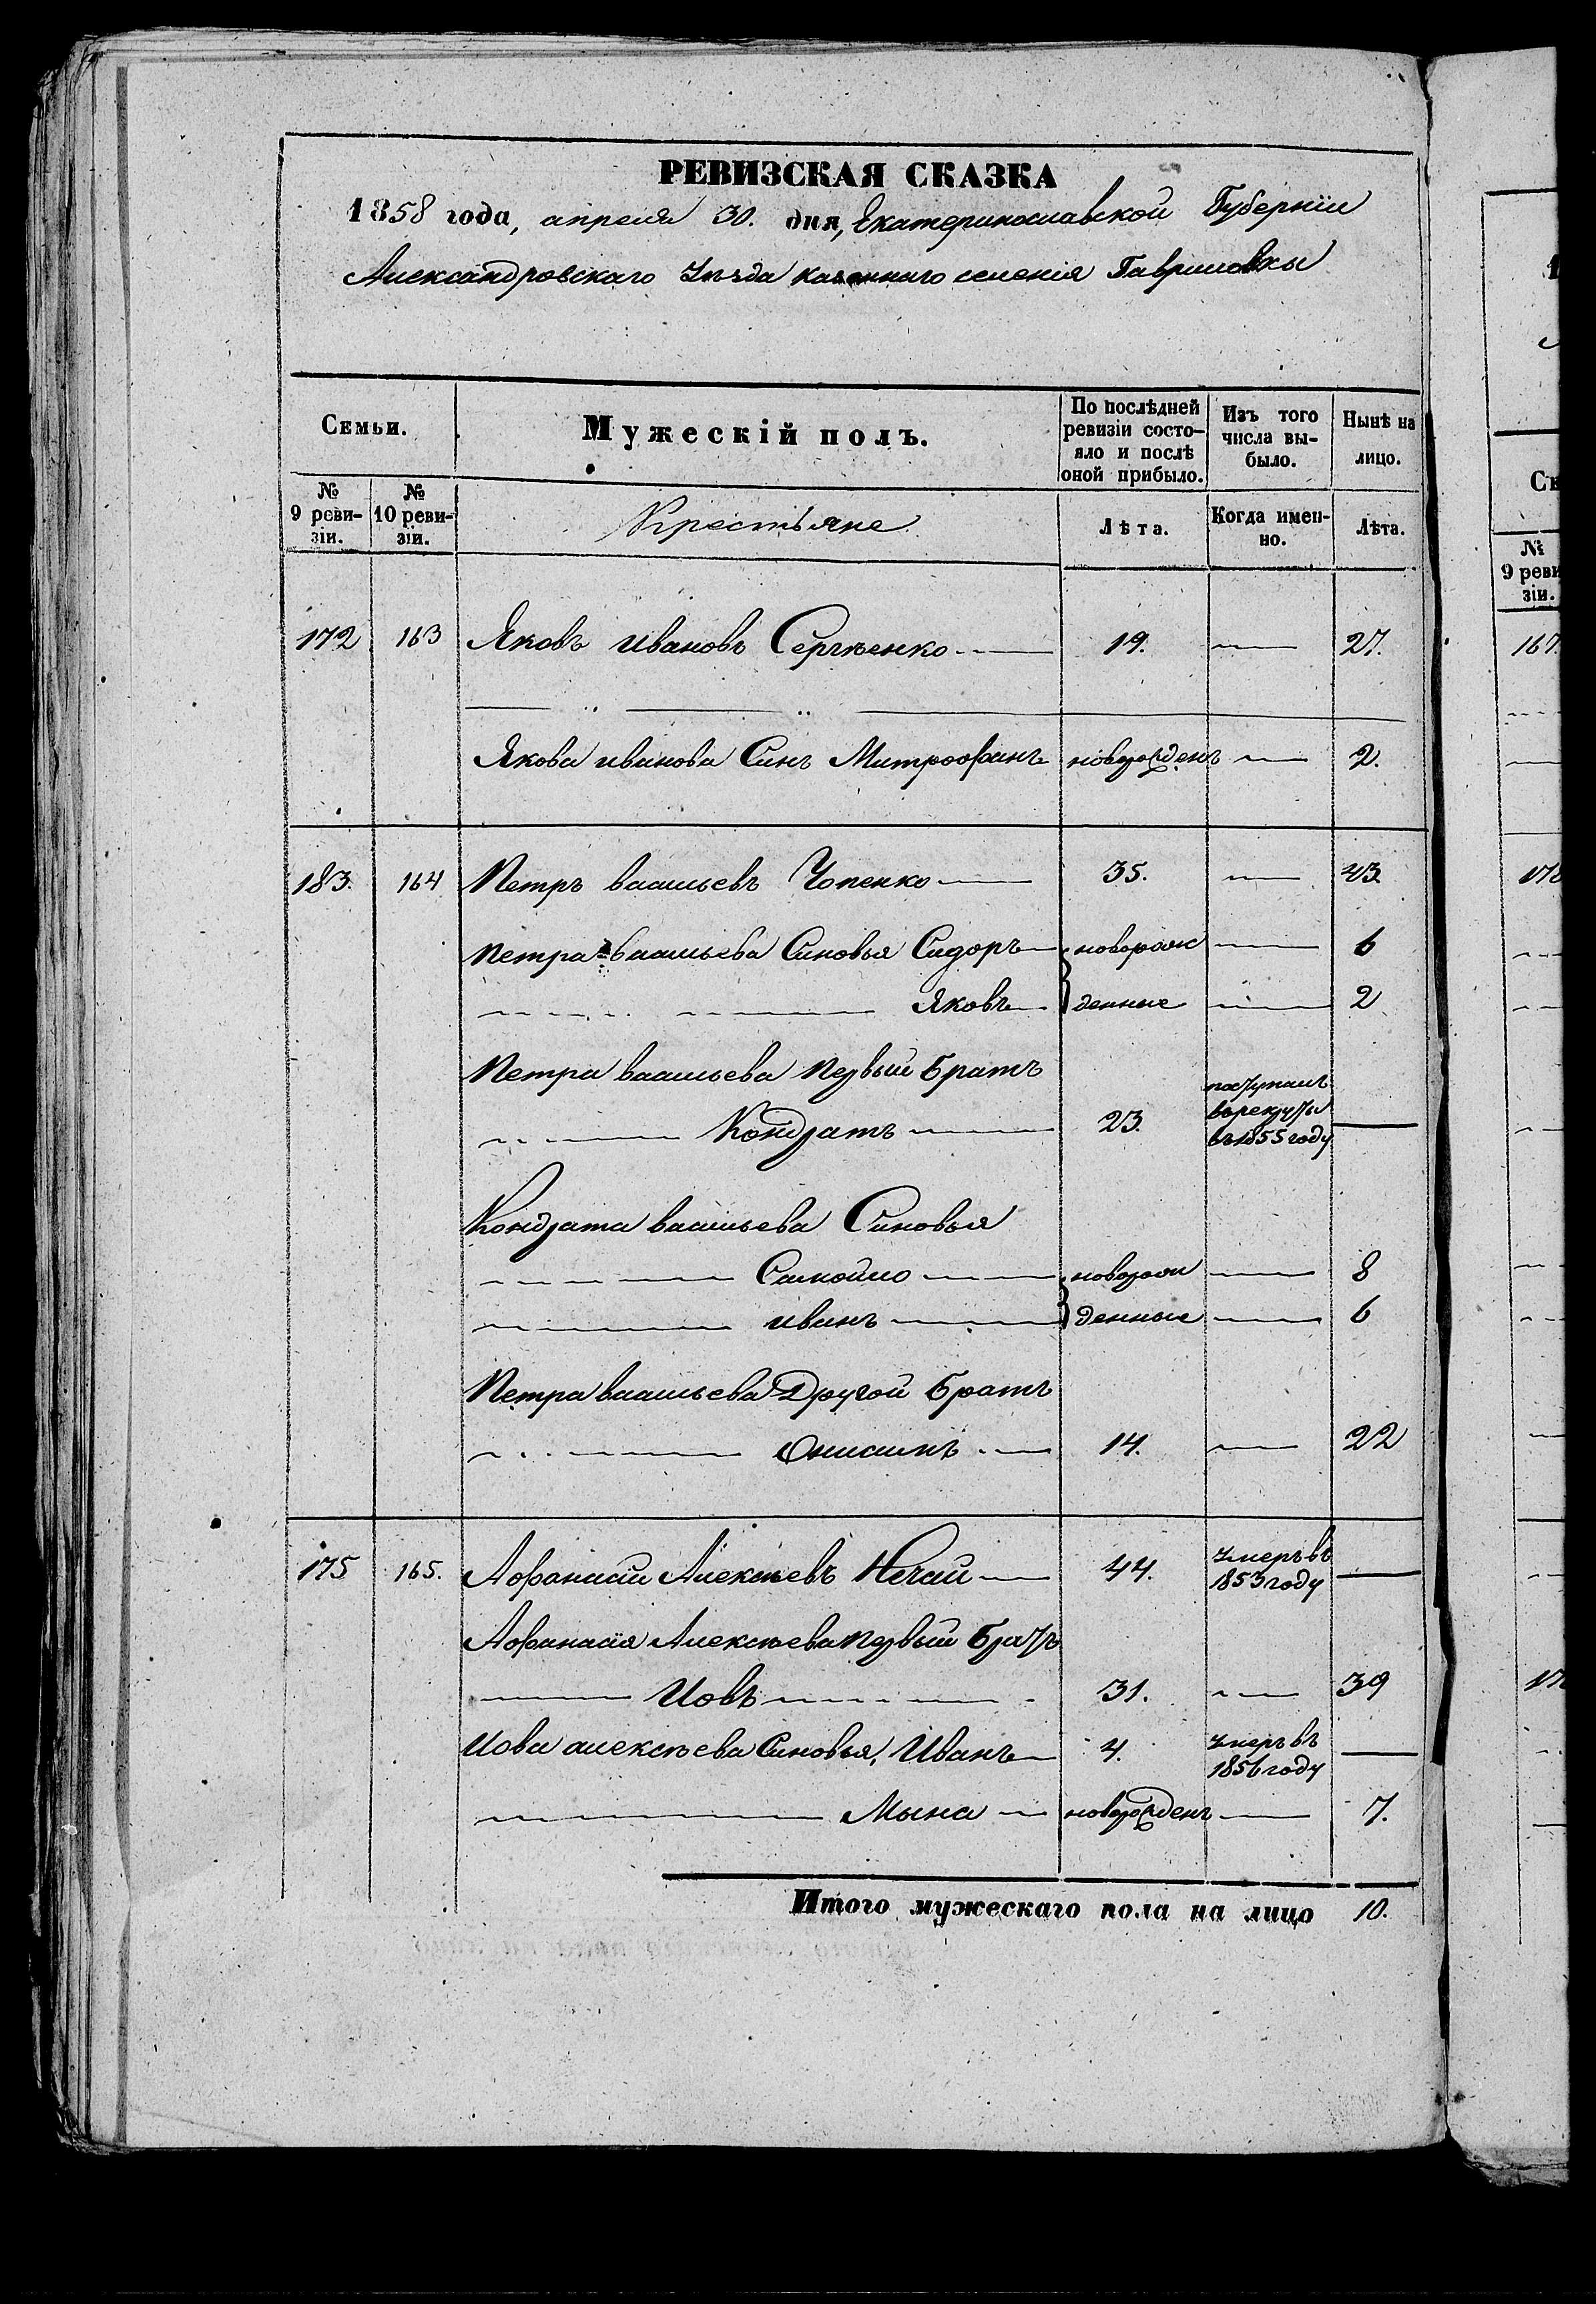 РЕВИЗСКАЯ СКАЗКА
1858 года, апреля 30. дня, Екатеринославской Губернiи
Александровскаго Уѣзда казеннаго селенiя Гавриловки
Семьи.
Мужескiй полъ.
По послѣдней ревизiи состо-яло и послѣ оной прибыло.
Изъ того числа вы-было.
Нынѣ на лицо.
№ 9 реви-зiи.
№ 10 реви-зiи.
Крестьяне
Лѣта.
Когда имен-но.
Лѣта.
172 163 Яковъ Ивановъ Сергѣенко 19. 27.
Якова иванова Синъ Митрофанъ новорожденъ 2.
183. 164 Петръ васильевъ Чопенко 35. 43.
Петра васильева Синовья Сидоръ новорож 6
Яковъ денные 2
Петра васильева Первый Братъ
Кондратъ 23. поступилъ в рекруты въ 1855 году
Кондрата васильева Синовья
Самойло новорож 8
иванъ денные 6
Петра васильева Другой Братъ
Онисимъ 14. 22
175 165. Афанасiй Алексѣевъ Нечай 44. Умеръ въ 1853 году
Афанасiя Алексѣева Первый Братъ
Иовъ 31. 39
Иова алексѣева Синовья, Иванъ 4. Умеръ въ 1856 году
Мына новорожденъ 7.
Итого мужескаго пола на лицо 10.
№ 9 реви зiи.
167.